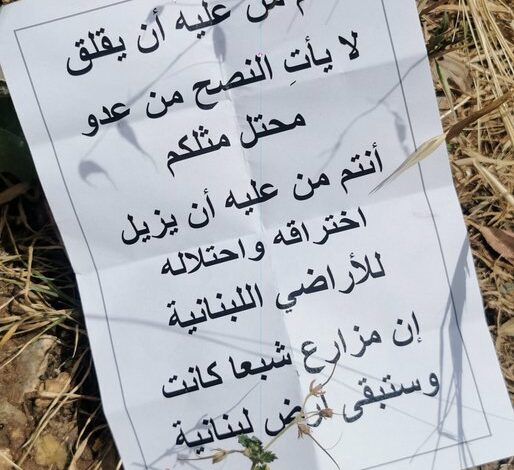 من عليه أن يقلق
لا يأتِ النصح من عدو
محتل مثلكم
أنتم من عليه أن يزيل
اختراقه واحتلاله
للأراضي اللبنانية
إن مزارع شبعا كانت
وستبقى أرض لبنانية